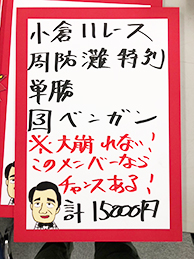 小倉11レース
周防灘特別
単勝
3 ベンガン
※大崩れない!
このメンバーなら
チャンスある!
計15000円